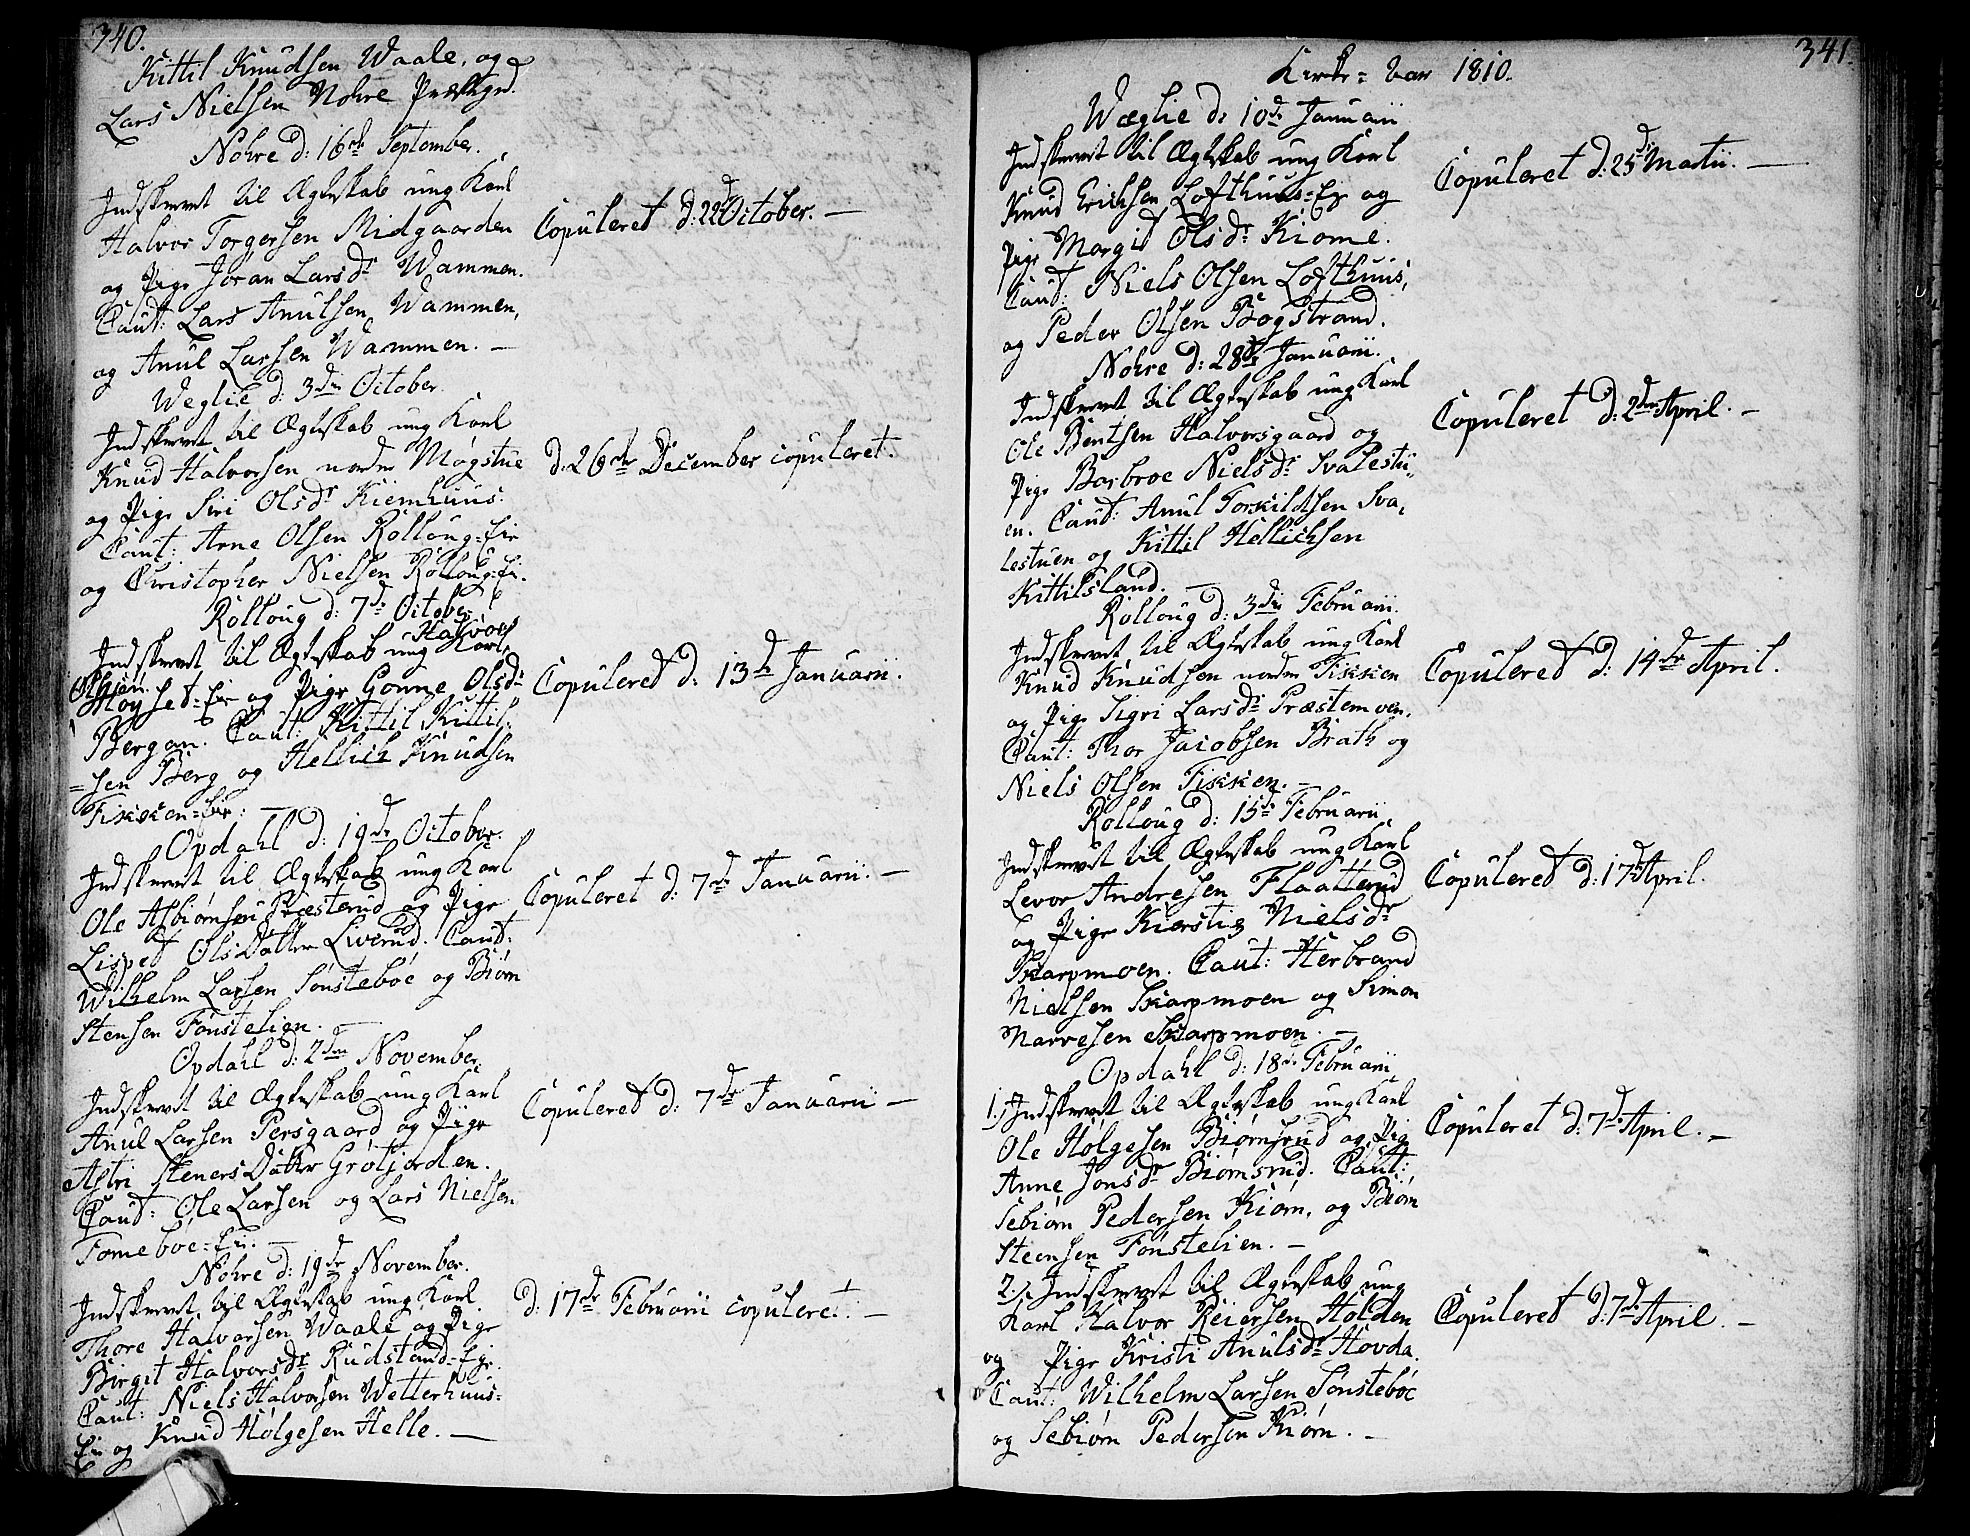 340.
Kittil Knudsen Waale, og
Lars Nielsen Nohre Præstegd.
Nohre d: 16de September.
Indskrevet til Ægteskab ung Karl
Halvor Torgersen Midgaarden
og Pige Jöran Larsdr Wammen.
Caut: Lars Anulsen Wammen,
og Anul Larsen Wammen. —
Copuleret d: 22d October. —
Weglie d: 3die October.
Indskrevet til Ægteskab ung Karl
Knud Halvorsen nordre Mogstue
og Pige Siri Olsdr Kiemhuus.
Caut: Arne Olsen Rolloug-Eie
og Christopher Nielsen Rolloug-Ei.
d. 26de December copuleret.
Rolloug d: 7de October
Indskrevet til Ægteskab ung Karl, Halvor
Olsen
Høyset-Eie og Pige Gonne Olsdr
Bergan. Caut: Kittil Kittil-
-sen Berg og Hellich Knudsen
Fikken-Eie. —
Copuleret d. 13de Januarii.
Opdahl d: 19de October.
Indskrevet til Ægteskab ung Karl
Ole Asbiørnsen Præsterud og Pige
Lispet OlsDatter Liverud. Caut:
Wilhelm Larsen Sønsteböe og Biørn
Stensen Fønstelien. —
Copuleret d: 7de Januarii. —
Opdahl d: 2den November.
Indskrevet til Ægteskab ung Karl
Anul Larsen Persgaard og Pige
Astri StenersDatter Grøtjorden.
Caut: Ole Larsen og Lars Nielsen
Tomeböe-Ei. —
Copuleret d: 7de Januarii —
Nohre d: 19de November.
Indskrevet til Ægteskab ung Karl
Thore Halvorsen Waale og Pige
Birgit Halvorsdr Rudstand-Eje.
Caut: Niels Halvorsen Wetterhuus-
Ei og Knud Holgesen Helle. —
d: 17de Februarii copuleret. —
341.
Kirke-Aar 1810.
Wæglie d: 10de Januarii
Indskrevet til Ægteskab ung Karl
Knud Erichsen Lofthuus-Ej og
Pige Margit Olsdr Kiome.
Caut: Niels Olsen Lofthuus,
og Peder Olsen Bogstrand.
Copuleret d: 25de Martii. —
Nohre d: 28de Januarii.
Indskrevet til Ægteskab ung Karl
Ole Bentsen Halvorsgaard og
Pige Barbroe Nielsdr Svalestu-
en. Caut: Anul Torkildsen Sva-
lestuen og Kittil Hellichsen
Kittilsland. —
Copuleret d: 2den April. —
Rolloug d: 3die Februarii.
Indskrevet til Ægteskab ung Karl
Knud Knudsen nordre Fikken
og Pige Sigri Larsdr Præstemoen.
Caut: Thor Jacobsen Brath og
Niels Olsen Fikken. —
Copuleret d: 14de April.
Rolloug d: 15de Februarii.
Indskrevet til Ægteskab ung Karl
Levor Andresen Flaatterud
og Pige Kiersti Nielsdr
Skarpmoen. Caut: Herbrand
Nielsen Skarpmoen og Simon
Narvesen Skarpmoen. —
Copuleret d: 17de April.
Opdahl d: 18de Februarii
1.) Indskrevet til Ægteskab ung Karl
Ole Holgesen Biørnsrud og Pig
Anne Jonsdr Biørnsrud. Caut:
Sebiørn Pedersen Kiørn, og Biørn
Steensen Fønstelien. —
Copuleret d: 7de April. —
2.) Indskrevet til Ægteskab ung
Karl Halvor Reiersen Holden
og Pige Kristi Anulsdr Hovda.
Caut: Wilhelm Larsen Sønsteböe
og Sebiørn Pedersen Kiørn. —
Copuleret d: 7de April. —